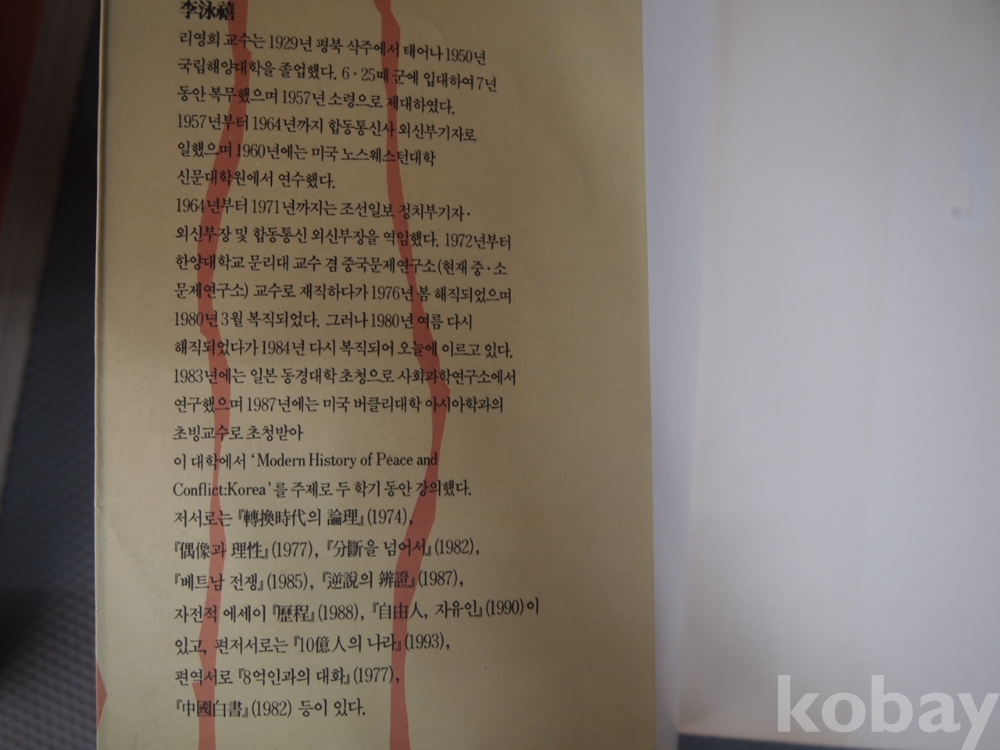 李泳禧
리영희 교수는 1929년 평북 삭주에서 태어나 1950년
국립해양대학을 졸업했다. 6·25때 군에 입대하여 7년
동안 복무했으며 1957년 소령으로 제대하였다.
1957년부터 1964년까지 합동통신사 외신부기자로
일했으며 1960년에는 미국 노스웨스턴대학
신문대학원에서 연수했다.
1964년부터 1971년까지는 조선일보 정치부기자·
외신부장 및 합동통신 외신부장을 역임했다. 1972년부터
한양대학교 문리대 교수 겸 중국문제연구소(현재 중·소
문제연구소) 교수로 재직하다가 1976년 봄 해직되었으며
1980년 3월 복직되었다. 그러나 1980년 여름 다시
해직되었다가 1984년 다시 복직되어 오늘에 이르고 있다.
1983년에는 일본 동경대학 초청으로 사회과학연구소에서
연구했으며 1987년에는 미국 버클리대학 아시아학과의
초빙교수로 초청받아
이 대학에서 ‘Modern History of Peace and
Conflict:Korea’를 주제로 두 학기 동안 강의했다.
저서로는 『轉換時代의 論理』(1974),
『偶像과 理性』(1977), 『分斷을 넘어서』(1982),
『베트남 전쟁』(1985), 『逆說의 辨證』(1987),
자전적 에세이 『歷程』(1988), 『自由人, 자유인』(1990)이
있고, 편저서로는 『10億人의 나라』(1993),
편역서로 『8억인과의 대화』(1977),
『中國白書』(1982) 등이 있다.
kobay